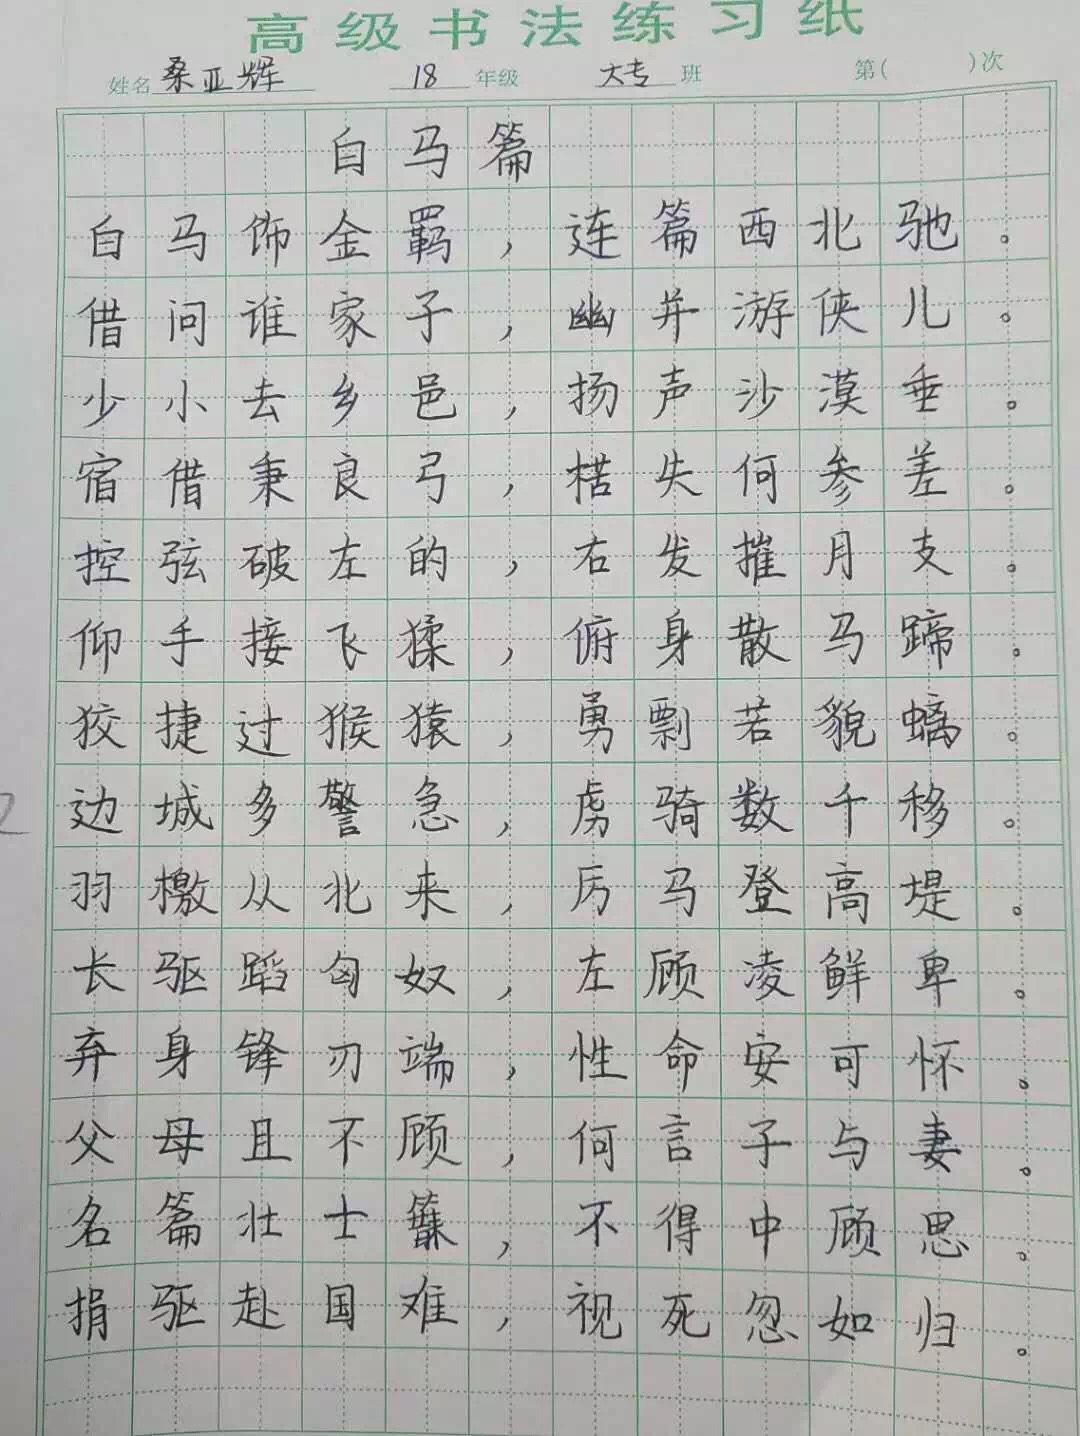 高级书法练习纸
姓名 桑亚辉 18 年级 大专 班 第( )次
白马篇
白马饰金羁，连篇西北驰。
借问谁家子，幽并游侠儿。
少小去乡邑，扬声沙漠垂。
宿借秉良弓，楛失何参差。
控弦破左的，右发摧月支。
仰手接飞猱，俯身散马蹄。
狡捷过猴猿，勇剽若貌螭。
边城多警急，虏骑数千移。
羽檄从北来，厉马登高堤。
长驱蹈匈奴，左顾凌鲜卑。
弃身锋刃端，性命安可怀。
父母且不顾，何言子与妻。
名篇壮士籍，不得中顾思。
捐驱赴国难，视死忽如归。